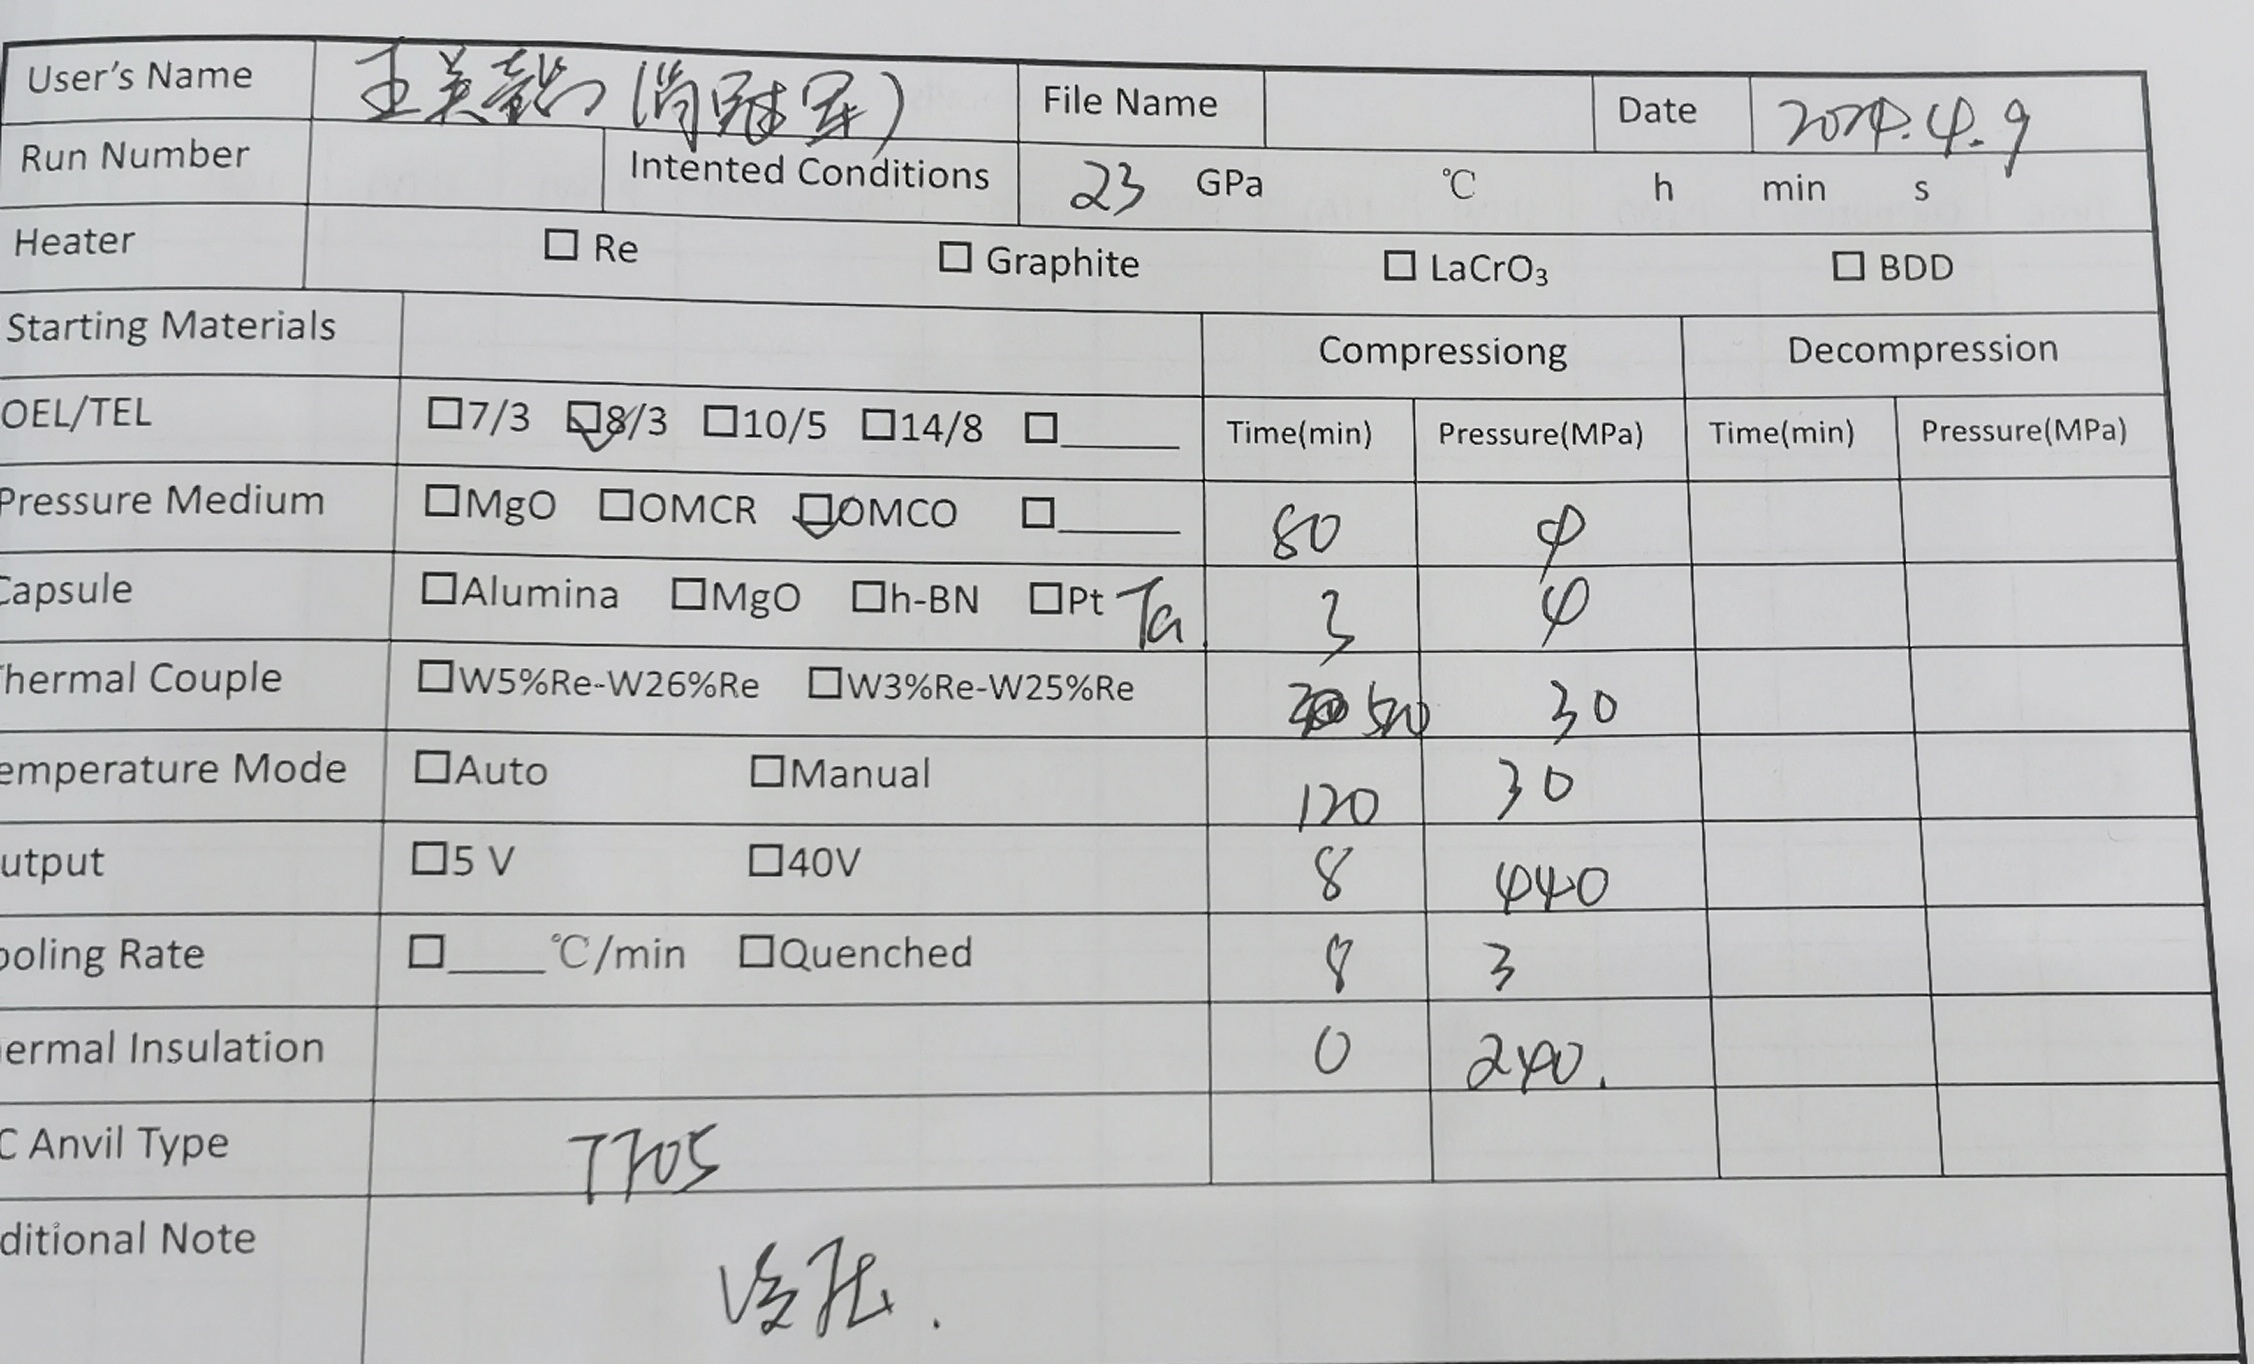 User's Name 王美懿 (尚冠军) File Name Date 2024.4.9
Run Number Intented Conditions 23 GPa ℃ h min s
Heater □ Re □ Graphite □ LaCrO₃ □ BDD
Starting Materials Compressiong Decompression
OEL/TEL □7/3 ☑8/3 □10/5 □14/8 □______ Time(min) Pressure(MPa) Time(min) Pressure(MPa)
Pressure Medium □MgO □OMCR ☑OMCO □______ 80 4
Capsule □Alumina □MgO □h-BN □Pt Ta 3 4
hermal Couple □W5%Re-W26%Re □W3%Re-W25%Re 30
emperature Mode □Auto □Manual 120 30
utput □5 V □40V 8 440
ooling Rate □____℃/min □Quenched 8 3
ermal Insulation 0 240.
C Anvil Type T705
ditional Note
冷压.